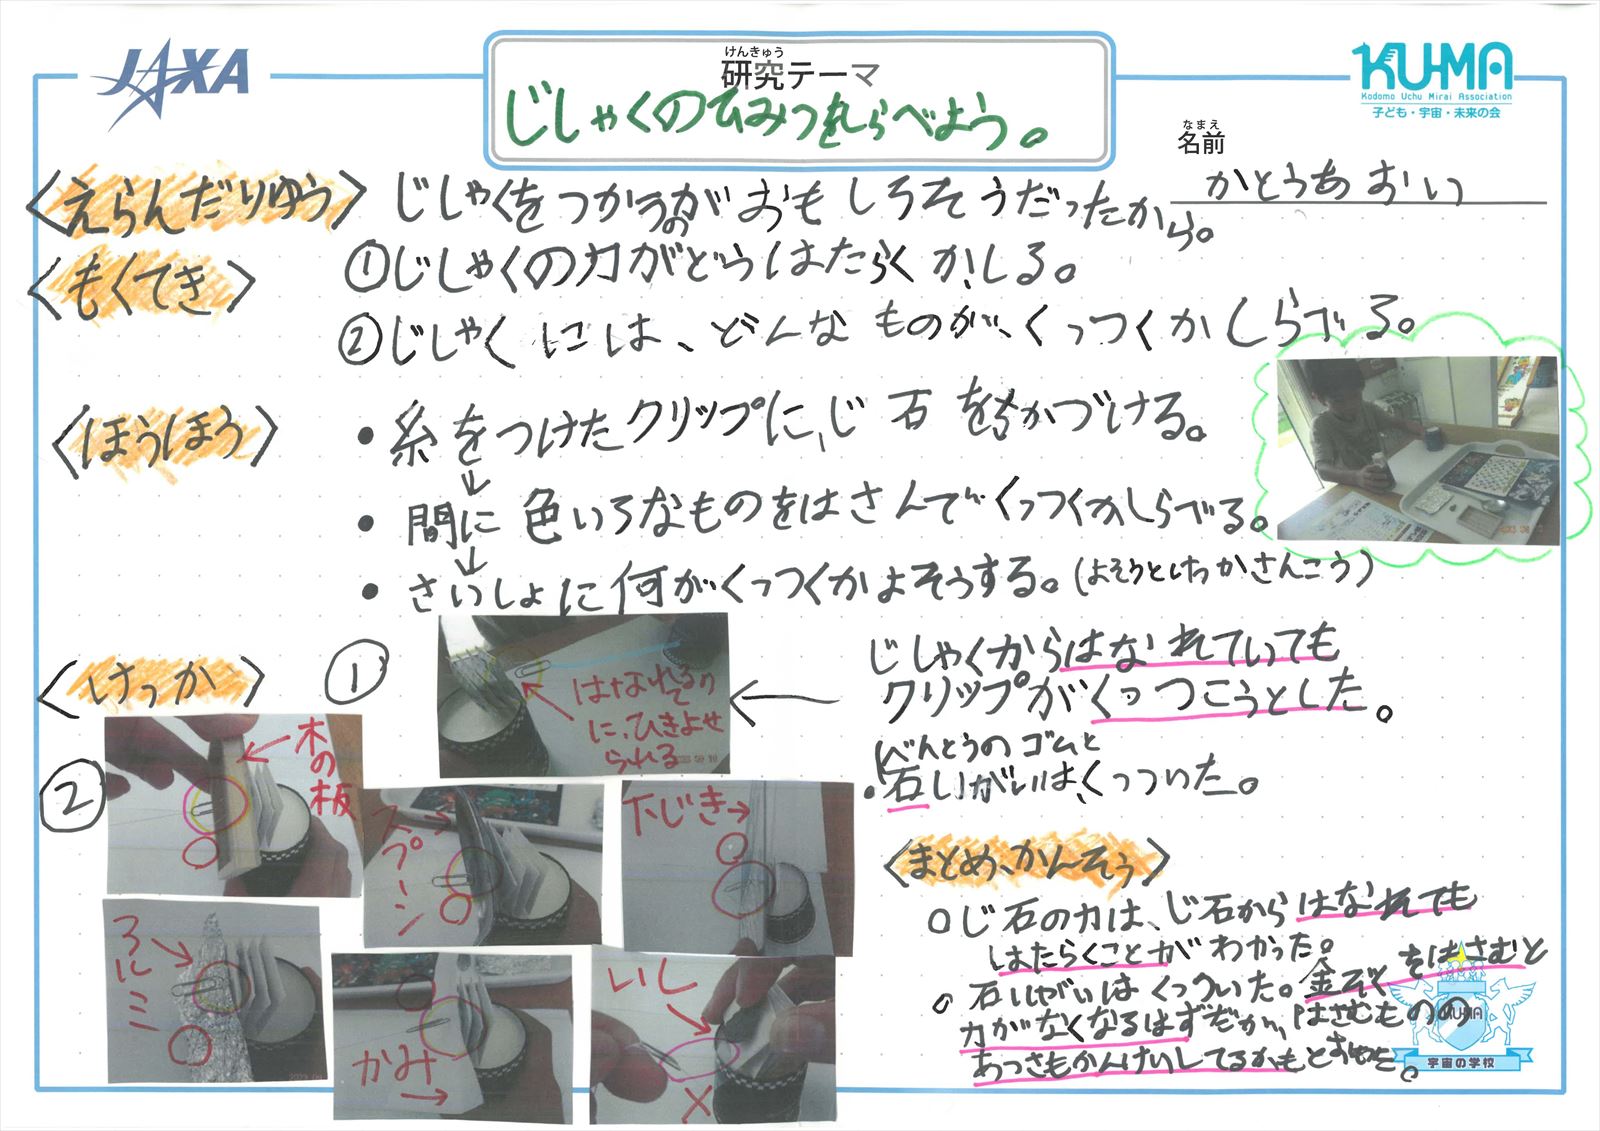 JAXA
けんきゅう
研究テーマ
じしゃくのひみつをしらべよう。
KU-MA
Kodomo Uchu Mirai Association
子ども・宇宙・未来の会
なまえ
名前
かとうあおい
<えらんだりゆう> じしゃくをつかうのがおもしろそうだったから。
<もくてき> ①じしゃくの力がどうはたらくか、しる。
②じしゃくには、どんなものが、くっつくかしらべる。
<ほうほう> ・糸をつけたクリップに、じ石をちかづける。
↓
・間に色いろなものをはさんでくっつくかしらべる。
↓
・さいしょに何がくっつくかよそうする。(よそうとけっかさんこう)
<けっか> ①
はなれてるのに、ひきよせられる
じしゃくからはなれていても
クリップがくっつこうとした。
②
・べんとうのゴムと
石いがいは、くっついた。
木の板
スプーン
下じき→
アルミ
かみ
→
いし
×
<まとめ、かんそう>
○じ石の力は、じ石からはなれてても
はたらくことがわかった。
○石いがいはくっついた。金ぞくをはさむと
力がなくなるはずだが、はさむものの
あつさもかんけいしてるかもと
KUMA
宇宙の学校